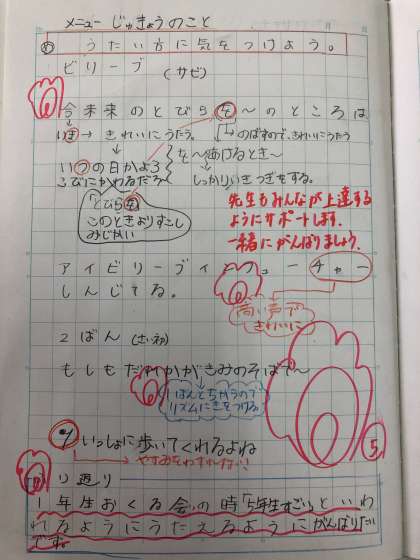 メニュー じゅぎょうのこと
め うたい方に気をつけよう。
ビリーブ
(サビ)
今未来のとびらを〜のところは
いま→きれいにうたう。
のばすので、きれいにうたう
いつの日かよろ
こびにかわるだろ
を〜あけるとき〜
しっかりいきつぎをする。
「とびらを」
このときよりすこし
みじかい
先生もみんなが上達する
ようにサポートします。
一緒にがんばりましょう。
アイビリーブインフューチャー
しんじてる。
高い声で
きれいに
2ばん(さいしょ)
もしもだれかがきみのそばで〜
1ばんとちがうので
リズムにきをつける
いっしょに歩いてくれるよね
やすみをわすれない!
5
ふり返り
1年生おくる会の時「5年生すごい」といわ
れるようにうたえるようにがんばりたい
です。